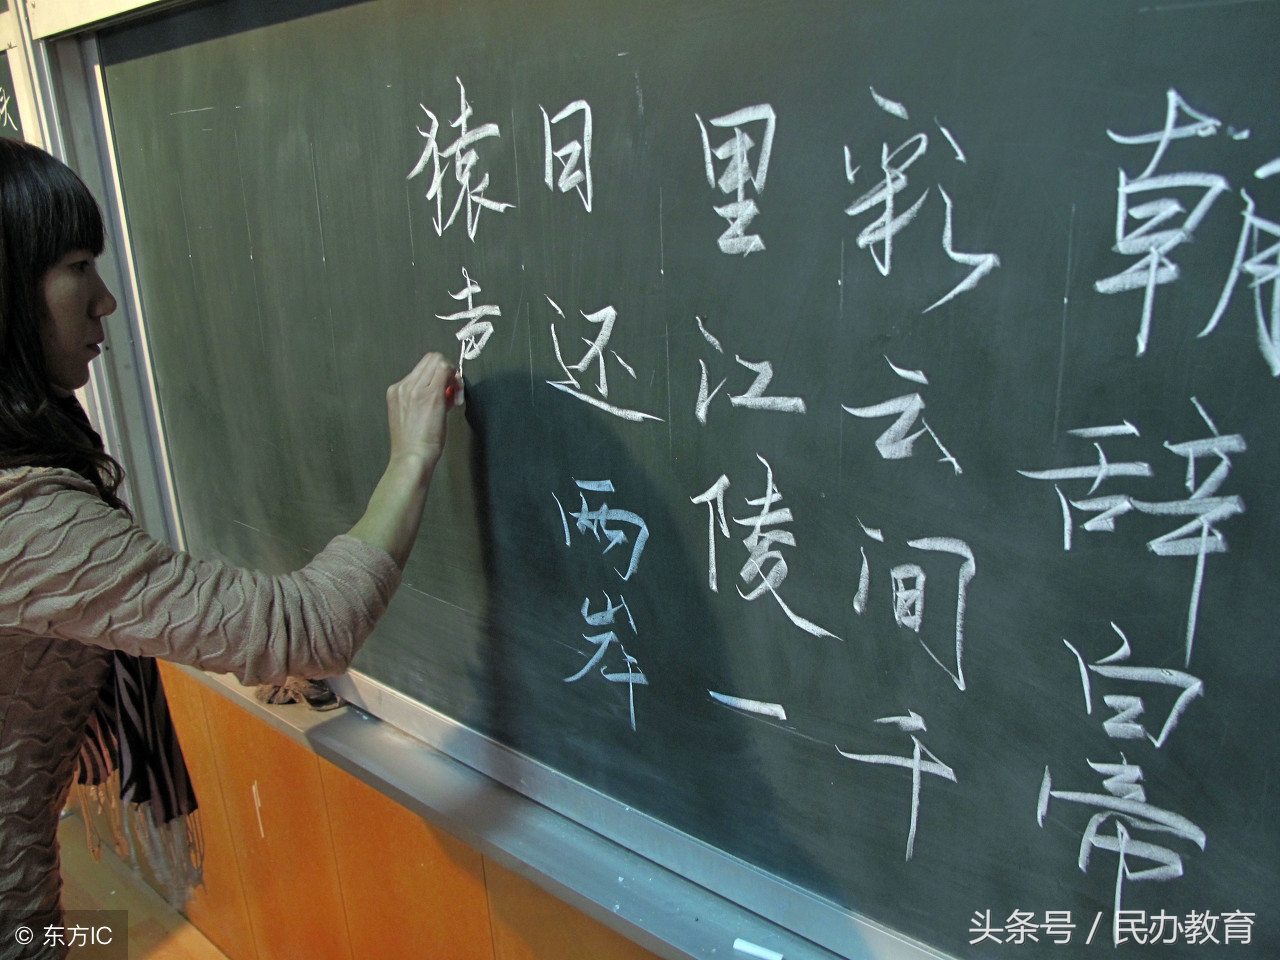 朝辞白帝
彩云间千
里江陵一
日还两岸
猿声
头条号 / 民办教育
© 东方IC